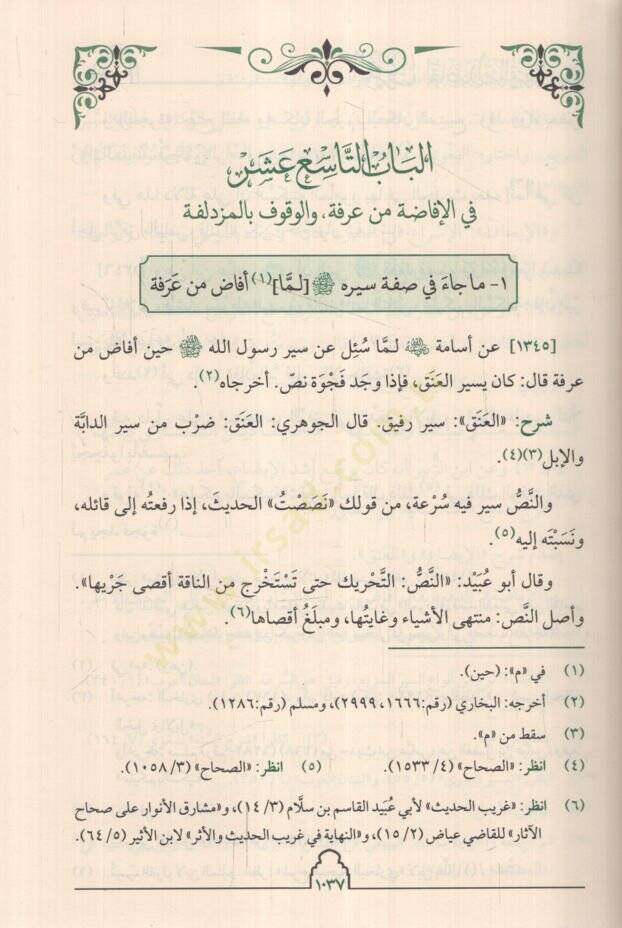 الباب التاسع عشر
في الإفاضة من عرفة، والوقوف بالمزدلفة
١- ما جاءَ في صفة سيره ﷺ [لـمَّا](١) أفاض من عَرَفة
[١٣٤٥] عن أسامة رضي الله عنه لـمَّا سُئِل عن سير رسول الله ﷺ حين أفاض من
عرفة قال: كان يسير العَنَق، فإذا وجَد فَجْوَة نصّ. أخرجاه(٢).
شرح: «العَنَق»: سير رفيق. قال الجوهري: العَنَق: ضرْب من سير الدابَّة
والإبل(٣)(٤).
والنَّصُّ سير فيه سُرْعة، من قولك «نَصَصْتُ» الحديثَ، إذا رفعتُه إلى قائله،
ونَسَبْتَه إليه(٥).
وقال أبو عُبَيْد: «النَّصُّ: التَّحْريك حتى تَسْتَخْرج من الناقة أقصى جَرْيها».
وأصل النَّص: منتهى الأشياء وغايتُها، ومبلَغُ أقصاها(٦).
(١) في «م»: (حين).
(٢) أخرجه: البخاري (رقم:١٦٦٦، ٢٩٩٩)، ومسلم (رقم:١٢٨٦).
(٣) سقط من «م».
(٤) انظر: «الصحاح» (٤/ ١٥٣٣). (٥) انظر: «الصحاح» (٣/ ١٠٥٨).
(٦) انظر: «غريب الحديث» لأبي عُبَيد القاسم بن سلَّام (٣/ ١٤)، و«مشارق الأنوار على صحاح
الآثار» للقاضي عياض (٢/ ١٥)، و«النهاية في غريب الحديث والأثر» لابن الأثير (٥/ ٦٤).
١٠٣٧